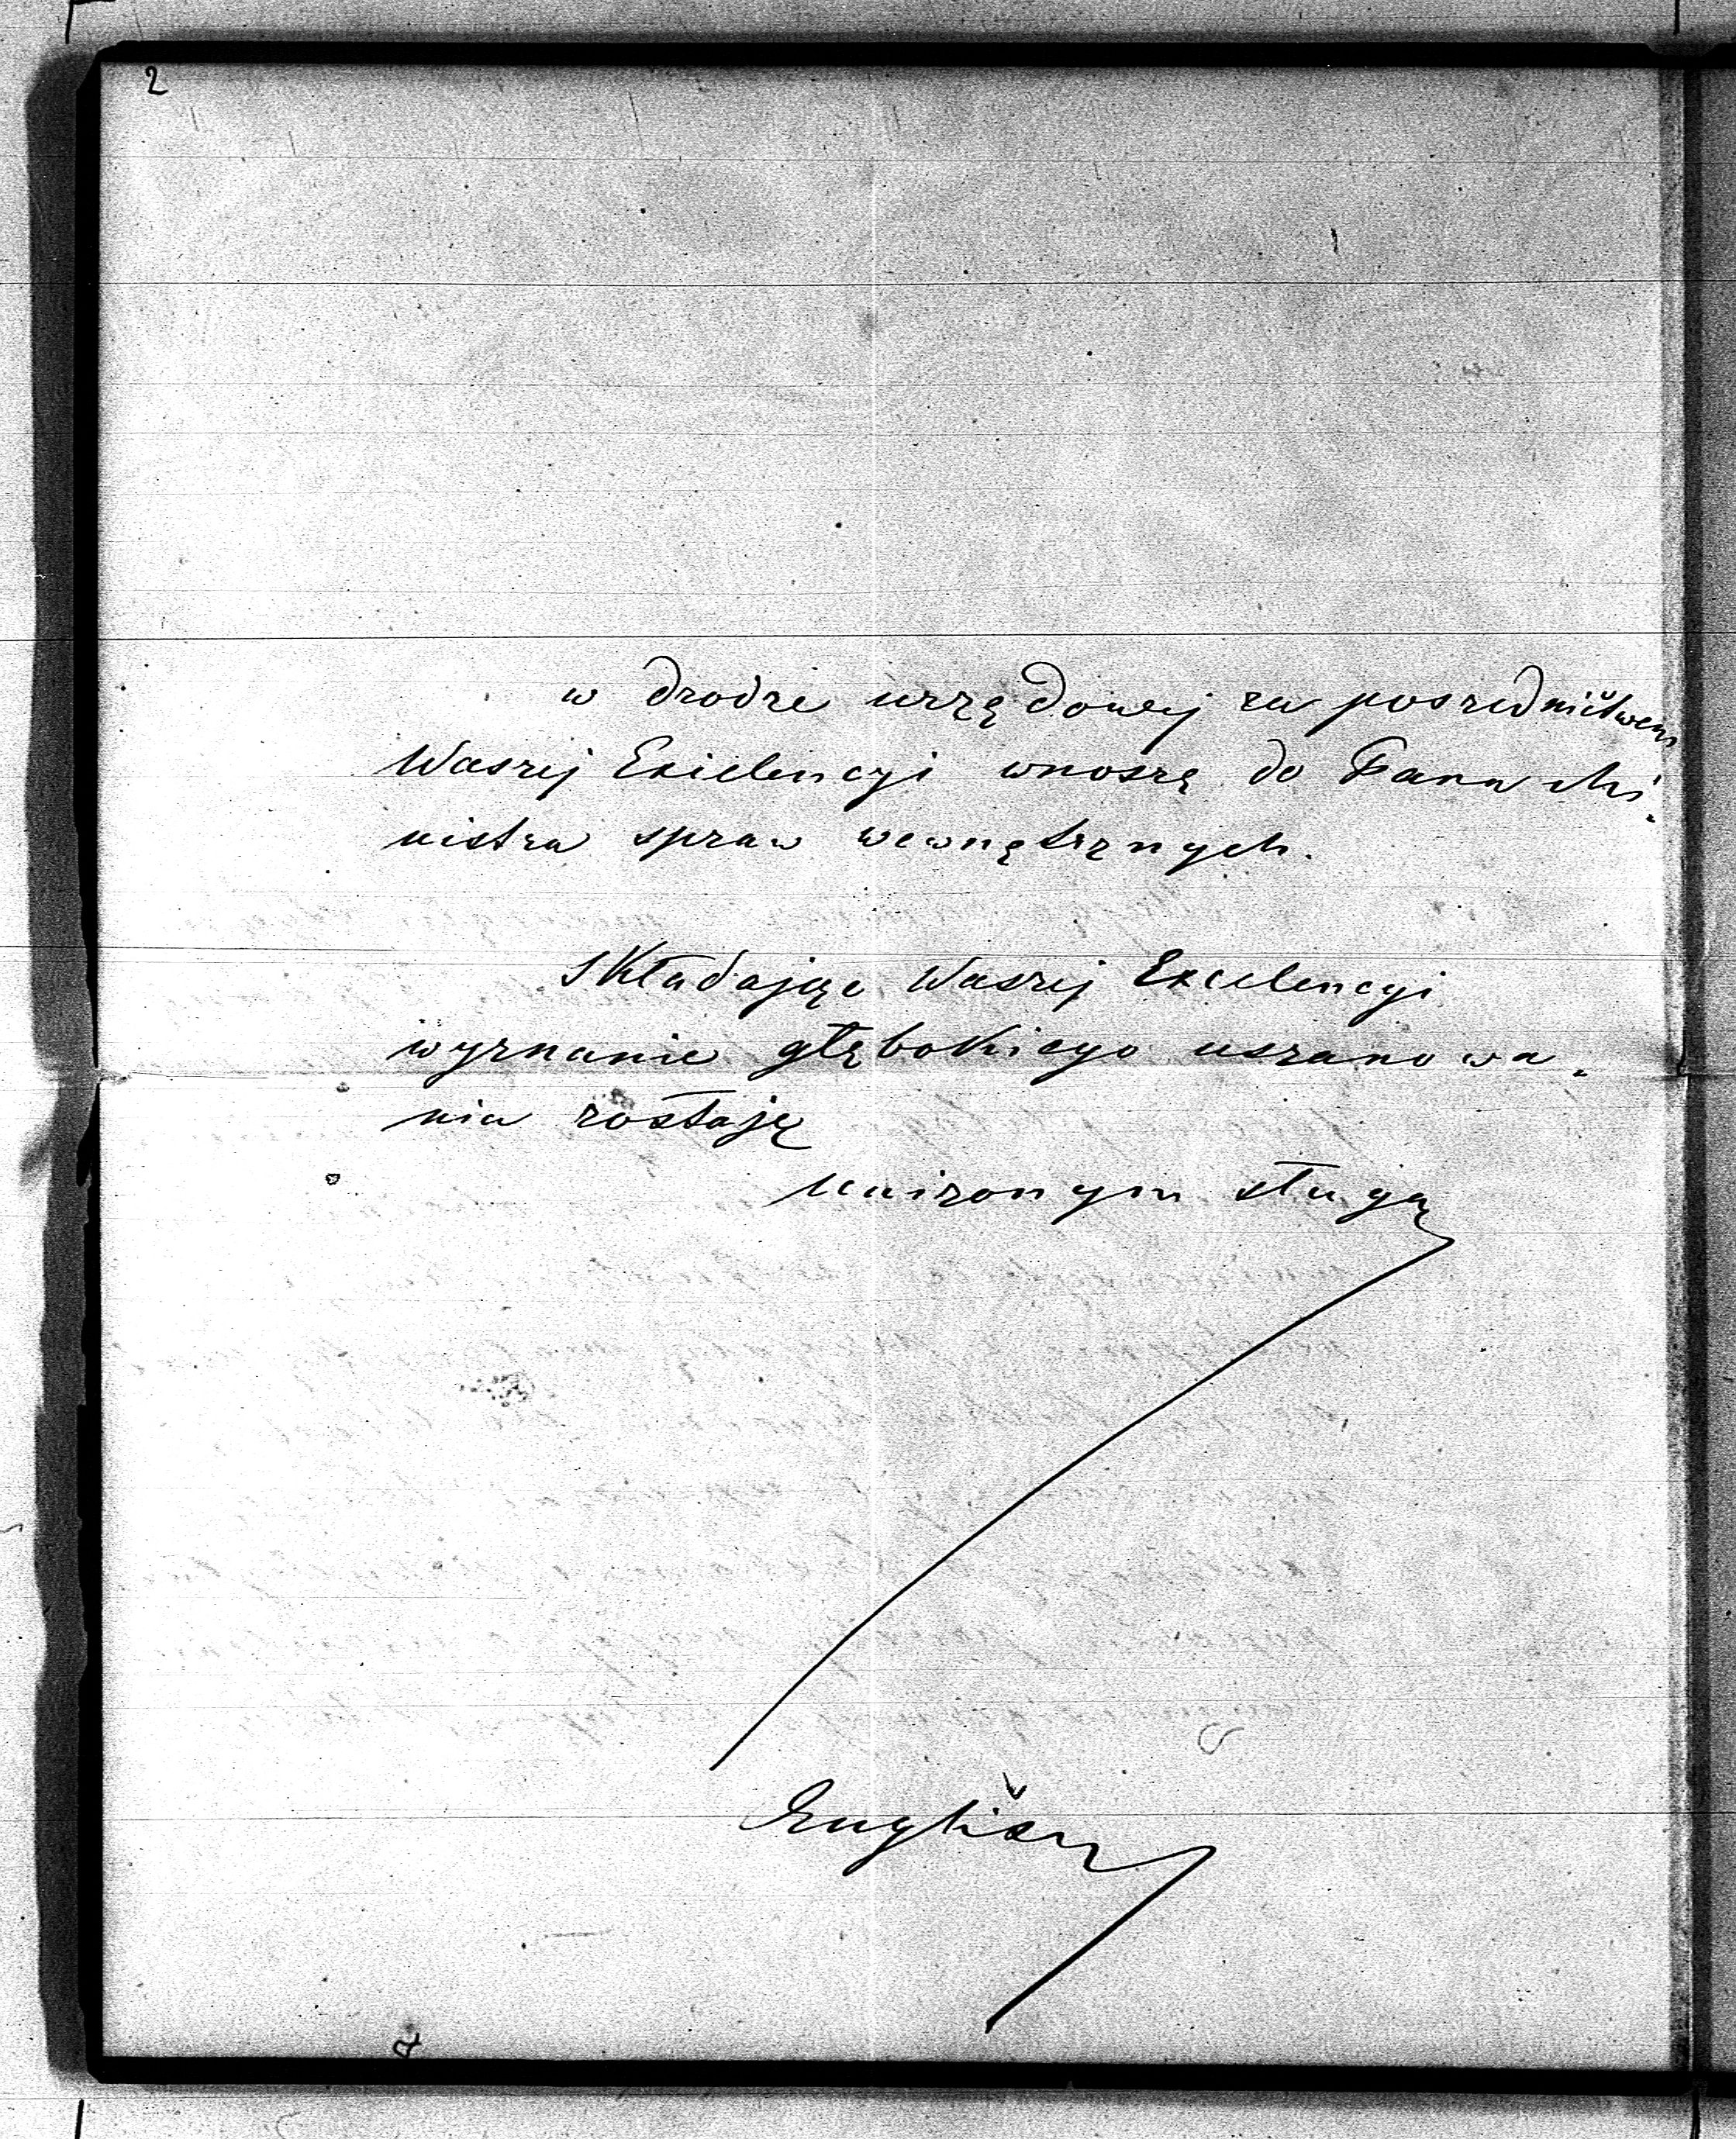 2
w drodze urzędowej za pośrednictwem
Waszej Excelencyi wnoszę do Pana Mi-
nistra spraw wewnętrznych.
Składając Waszej Excelencyi
wyznanie głębokiego uszanowa-
nia zostaję
uniżonym sługą